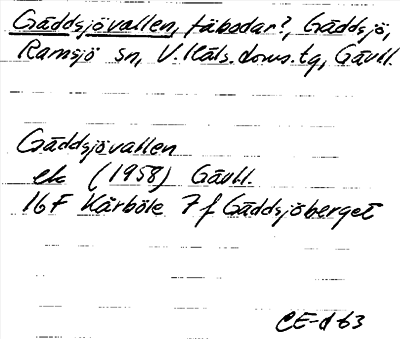 Gäddsjövallen, fäbodar?, Gäddsjö,
Ramsjö sn, V. Häls. doms. tg, Gävll.
Gäddsjövallen
ek (1958) Gävll.
16F Kårböle 7f Gäddsjöberget
CE-d 63